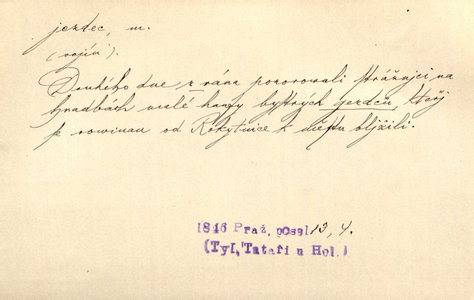 jezdec, m.
(vojín).
Druhého dne z rána pozorovali strážníci na
hradbách malé houfy bystrých jezdců, kteří
po rowinau od Rokytnice k městu bljžili.
1846 Praž. posel 13, 4.
(Tyl, Tataři u Hol.)